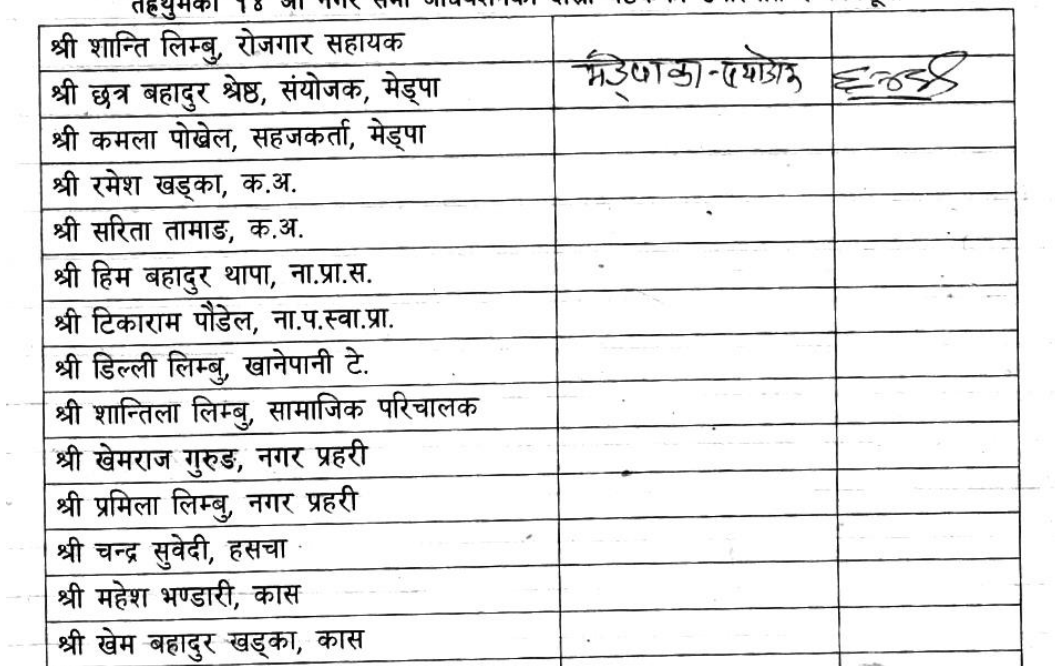 श्री शान्ति लिम्बु, रोजगार सहायक
श्री छत्र बहादुर श्रेष्ठ, संयोजक, मेड्पा
श्री कमला पोखेल, सहजकर्ता, मेड्पा
श्री रमेश खड्का, क.अ.
श्री सरिता तामाङ, क.अ.
श्री हिम बहादुर थापा, ना.प्रा.स.
श्री टिकाराम पौडेल, ना.प.स्वा.प्रा.
श्री डिल्ली लिम्बु, खानेपानी टे.
श्री शान्तिला लिम्बु, सामाजिक परिचालक
श्री खेमराज गुरुङ, नगर प्रहरी
श्री प्रमिला लिम्बु, नगर प्रहरी
श्री चन्द्र सुवेदी, हसचा
श्री महेश भण्डारी, कास
श्री खेम बहादुर खड्का, कास